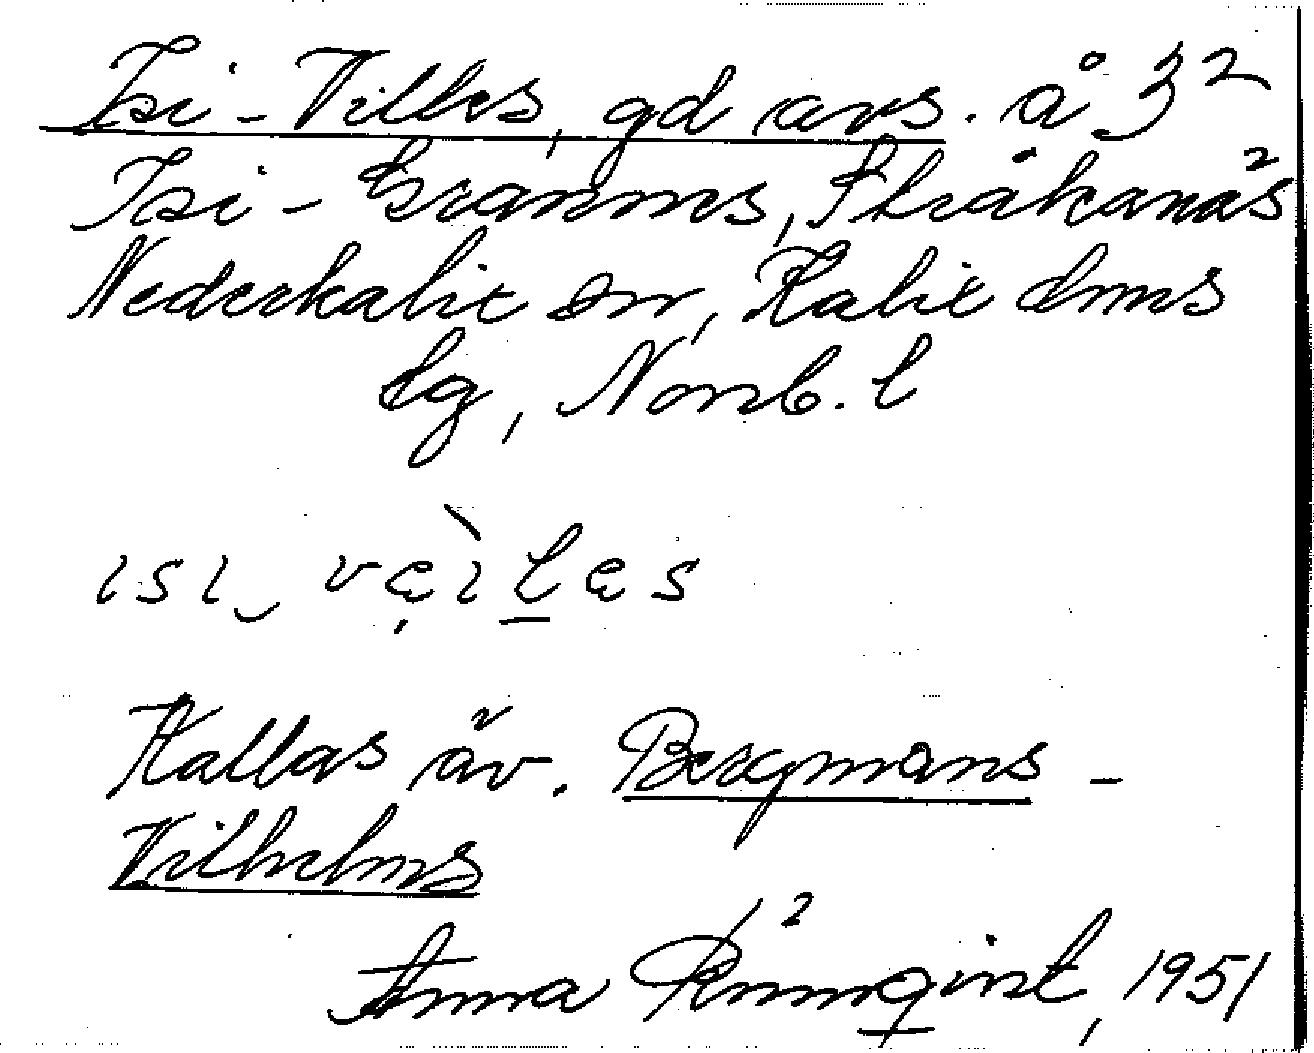 Isi-Villes, gd avs. å 3²
Isi-Granns, Stråkanäs
Nederkalix sn, Kalix dmns
lg, Norrb. l
ɪsɪ, vęìlęs
Kallas äv. Bergmans-
Vilhelms
Anna Rönnqvist, 1951